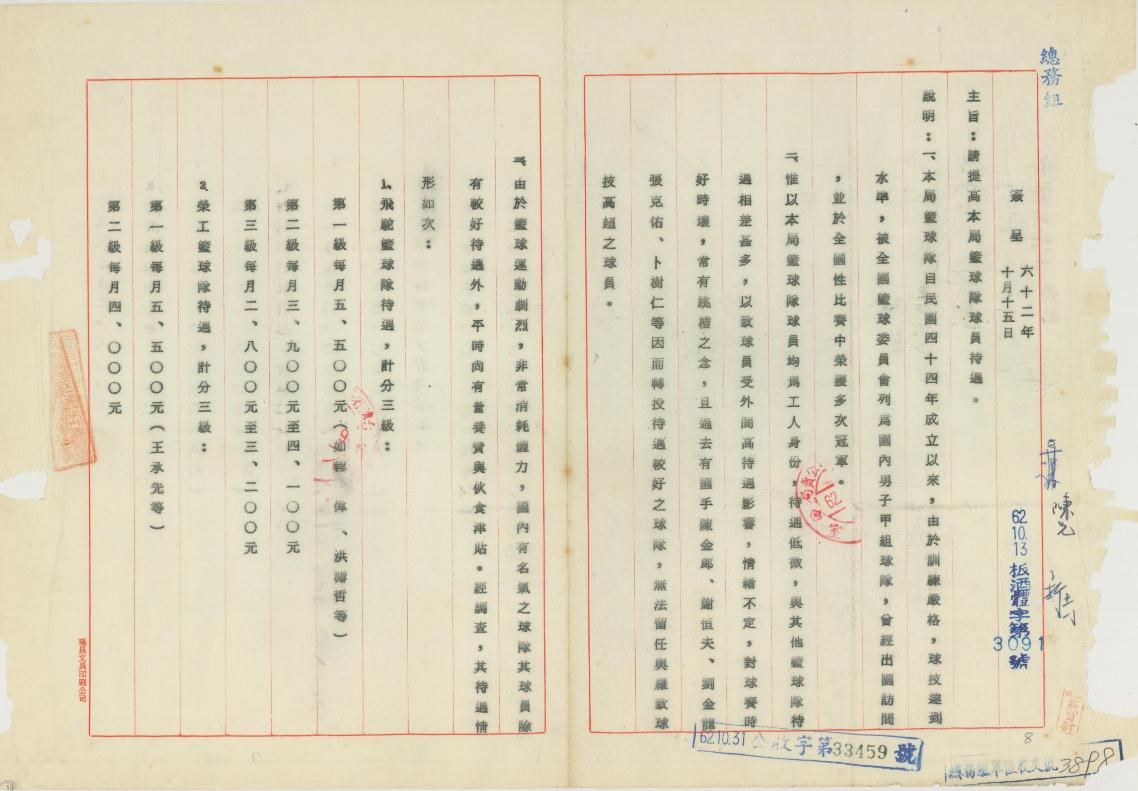 總務組
簽呈 六十二年
十月十五日
主旨：請提高本局籃球隊球員待遇。
說明：一、本局籃球隊自民國四十四年成立以來，由於訓練嚴格，球技達到
水準，被全國籃球委員會列為國內男子甲組球隊，曾經出國訪問
，並於全國性比賽中榮獲多次冠軍。
二、惟以本局籃球隊球員均為工人身份，待遇低微，與其他籃球隊待
遇相差甚多，以致球員受外間高待遇影響，情緒不定，對球賽時
好時壞，常有跳槽之念，且過去有國手陳金郎、謝恒夫、劉金龍
張克佑、卜樹仁等因而轉投待遇較好之球隊，無法留任與羅致球
技高超之球員。
三、由於籃球運動劇烈，非常消耗體力，國內有名氣之球隊其球員除
有較好待遇外，平時尚有營養費與伙食津貼。經調查，其待遇情
形如次：
1.飛駝籃球隊待遇，計分三級：
第一級每月五、五〇〇元（如程 偉、洪濬哲等）
第二級每月三、九〇〇元至四、一〇〇元
第三級每月二、八〇〇元至三、二〇〇元
2.榮工籃球隊待遇，計分三級：
第一級每月五、五〇〇元（王承先等）
第二級每月四、〇〇〇元
62.10.13 板酒體字第3091號
62.10.31 公收字第33459號
總務組單位收文號3898
瑞昌文具印刷公司
8